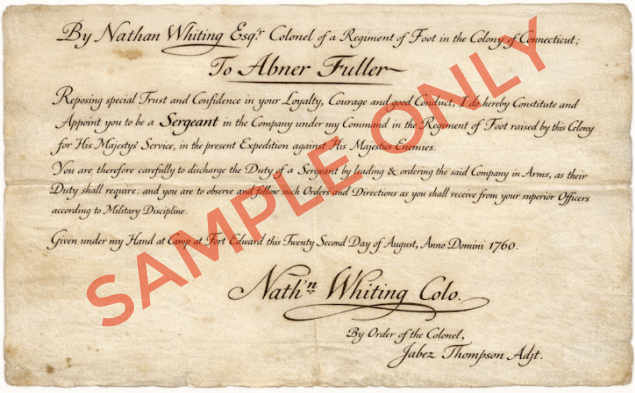 By Nathan Whiting Esqr Colonel of a Regiment of Foot in the Colony of Connecticut;
To Abner Fuller
Reposing special Trust and Confidence in your Loyalty, Courage and good Conduct, I do hereby Constitute and
Appoint you to be a Sergeant in the Company under my Command in the Regiment of Foot raised by this Colony
for His Majestys' Service, in the present Expedition against His Majesties Enemies.
You are therefore carefully to discharge the Duty of a Sergeant by leading & ordering the said Company in Arms, as their
Duty shall require: and you are to observe and follow such Orders and Directions as you shall receive from your superior Officers
according to Military Discipline.
Given under my Hand at Camp at Fort Edward this Twenty Second Day of August, Anno Domini 1760.
Nath'n Whiting Colo.
By Order of the Colonel,
Jabez Thompson Adjt.
SAMPLE ONLY